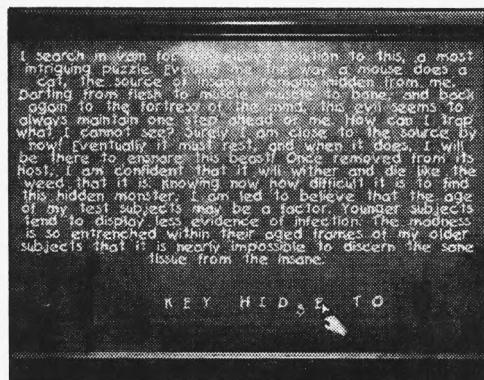 I search in vain for the elusive solution to this, a most
intriguing puzzle. Evading me the way a mouse does a
cat, the source of insanity remains hidden from me.
Darting from flesh to muscle, muscle to bone, and back
again to the fortress of the mind, this evil seems to
always maintain one step ahead of me. How can I trap
what I cannot see? Surely I am close to the source by
now! Eventually it must rest, and when it does, I will
be there to ensnare this beast! Once removed from its
host, I am confident that it will wither and die like the
weed that it is. Knowing now how difficult it is to find
this hidden monster, I am led to believe that the age
of my test subjects may be a factor. Younger subjects
tend to display less evidence of infection. The madness
is so entrenched within their aged frames of my older
subjects that it is nearly impossible to discern the sane
tissue from the insane.
KEY HID E TO